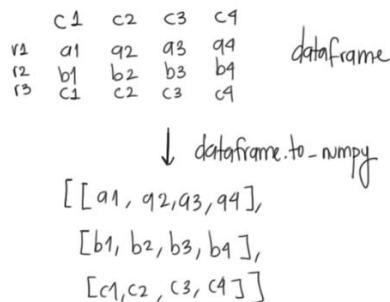 c1 c2 c3 c4
r1 a1 a2 a3 a4
r2 b1 b2 b3 b4
r3 c1 c2 c3 c4
dataframe
↓ dataframe.to_numpy
[[a1, a2, a3, a4],
[b1, b2, b3, b4],
[c1, c2, c3, c4]]